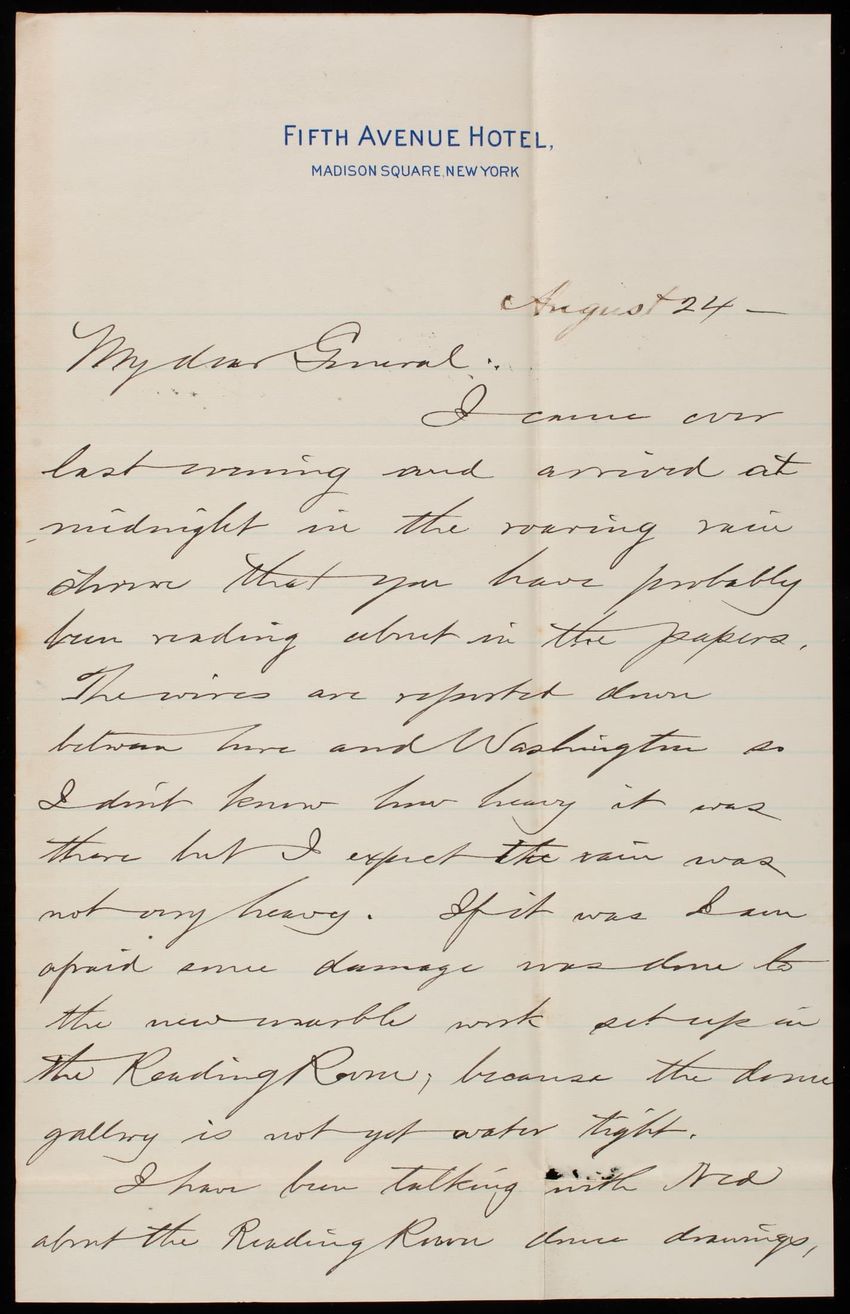 FIFTH AVENUE HOTEL,
MADISON SQUARE, NEW YORK
August 24 —
My dear General:
I came over
last evening and arrived at
midnight in the roaring rain
storm that you have probably
been reading about in the papers.
The wires are reported down
between here and Washington so
I don't know how heavy it was
there but I expect the rain was
not very heavy. If it was I am
afraid some damage was done to
the new marble work set up in
the Reading Room; because the dome
gallery is not yet water tight.
I have been talking with Ned
about the Reading Room dome drawings,